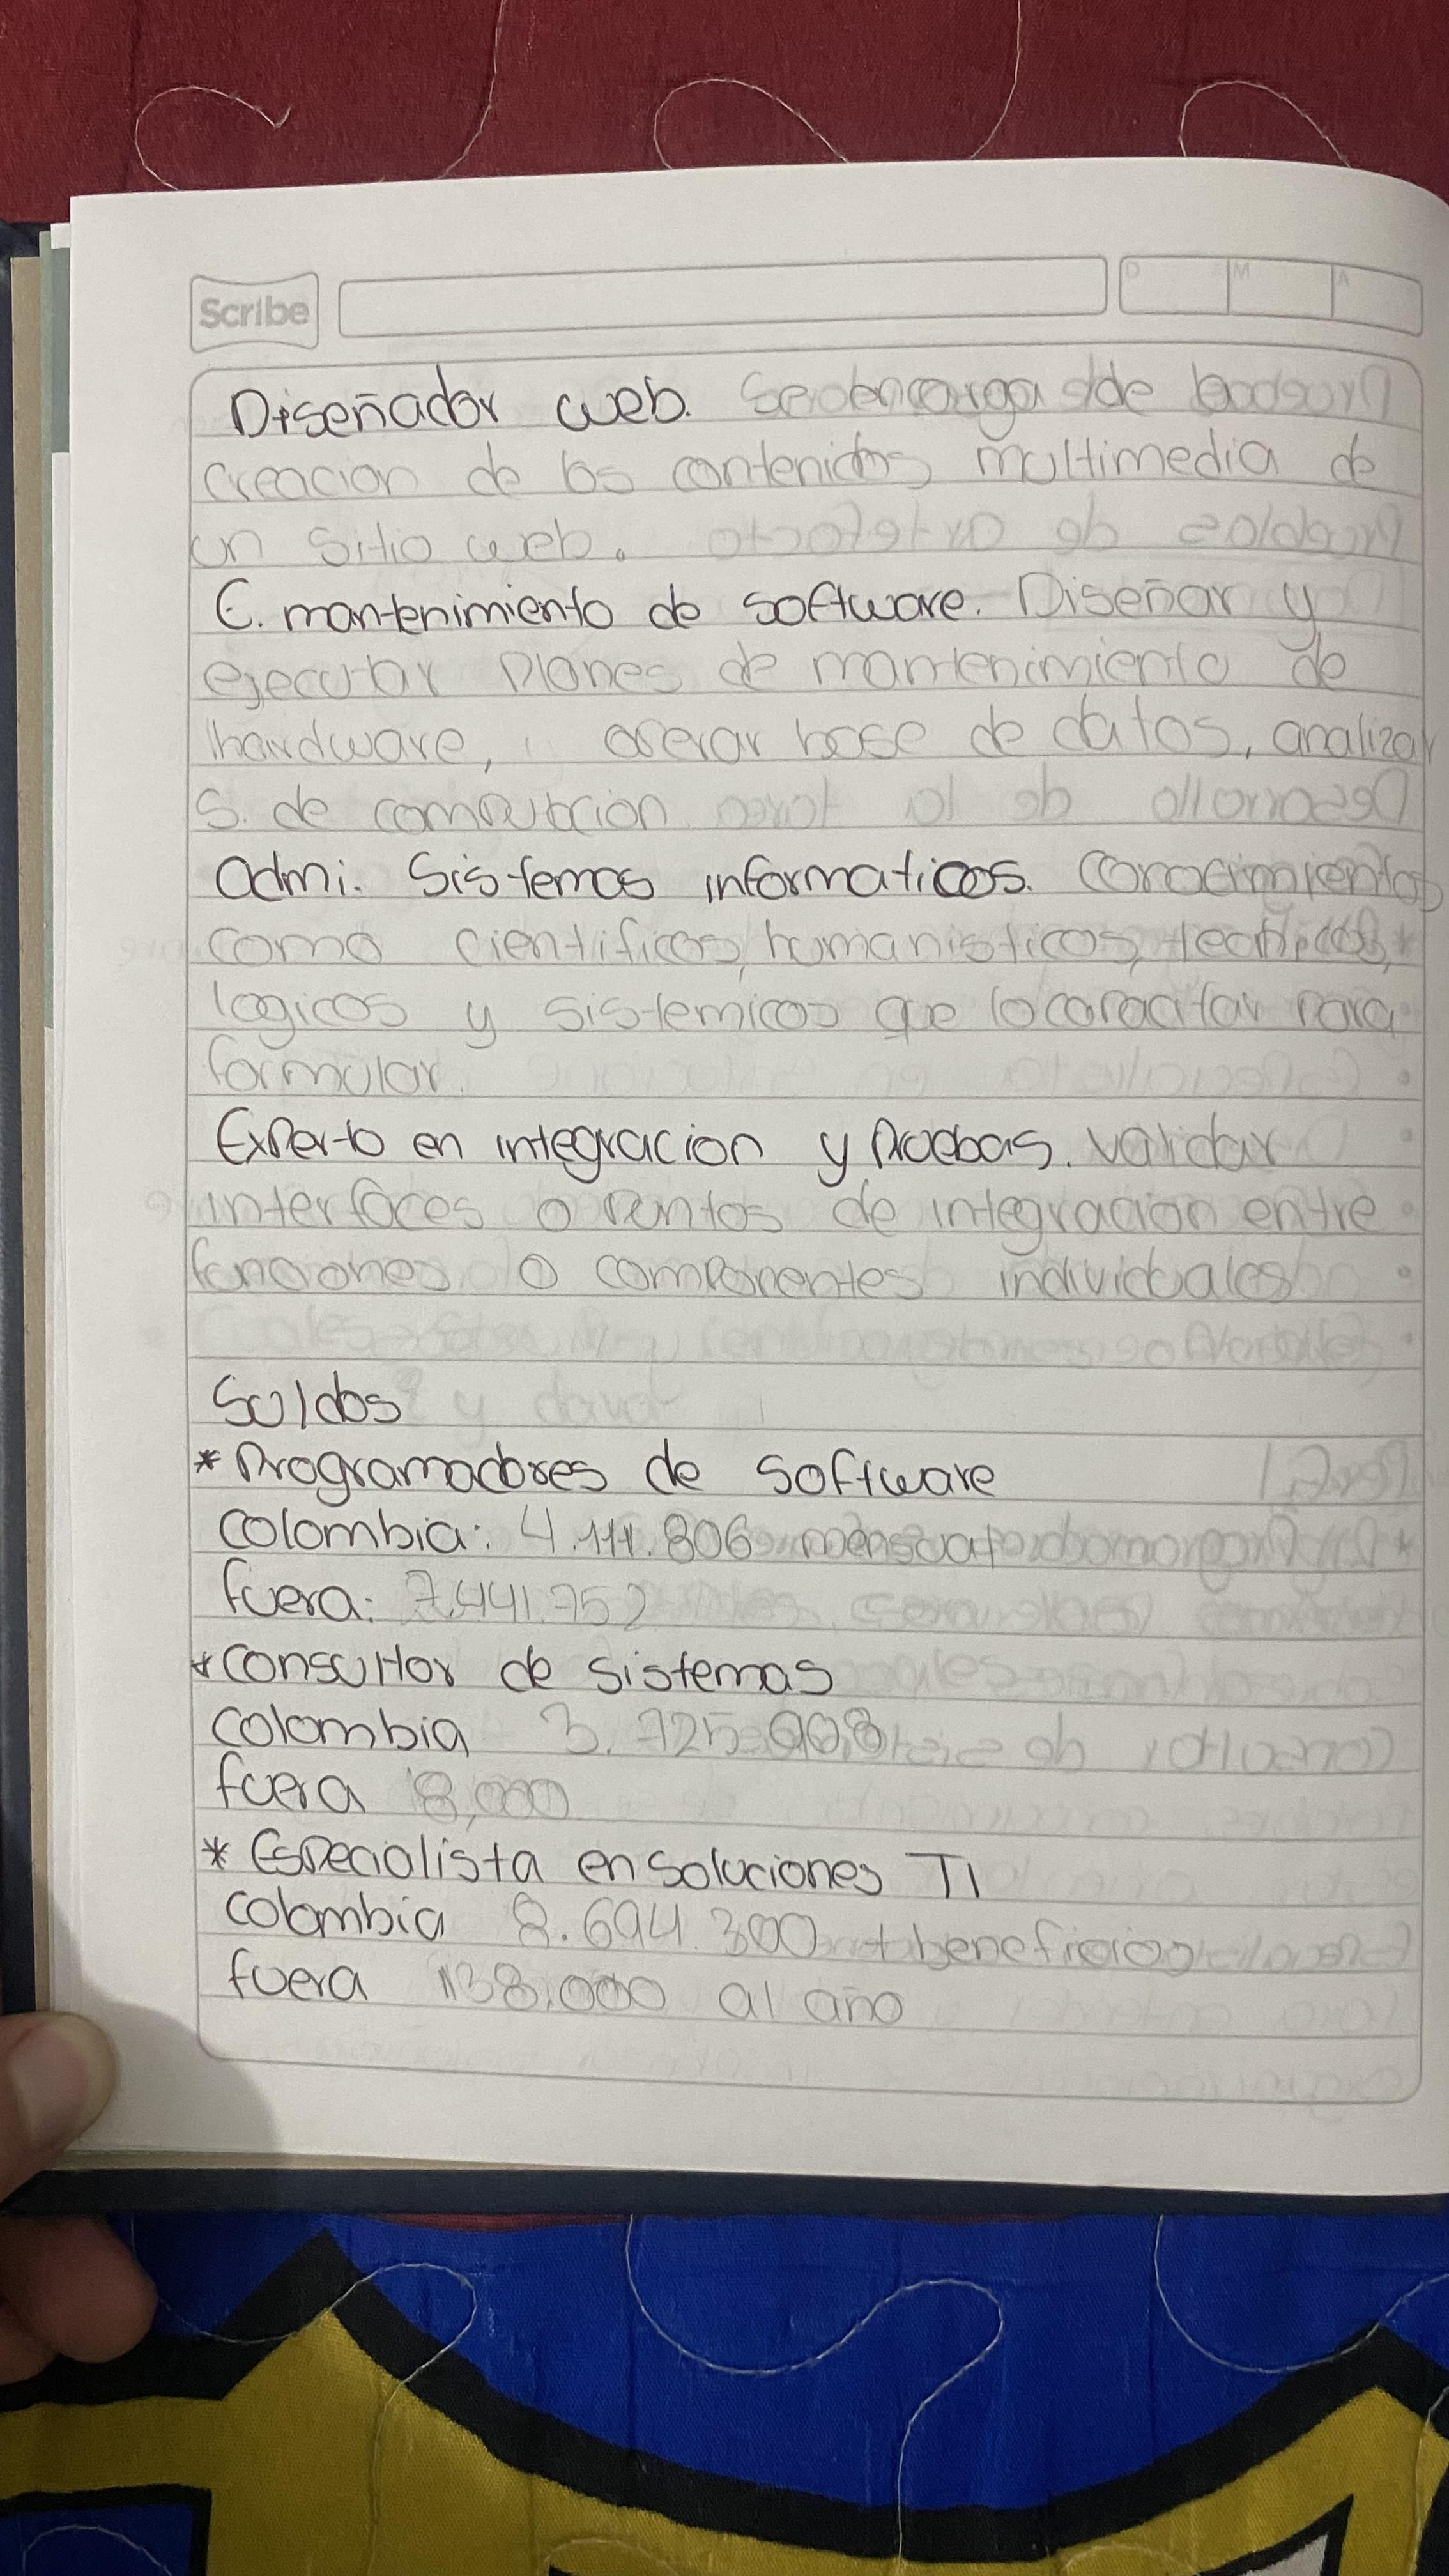 Scribe
D M A
Diseñador web. Se encarga de
creacion de los contenidos multimedia de
un sitio web.
E. mantenimiento de software. Diseñar y
ejecutar planes de mantenimiento de
hardware, operar base de datos, analizar
S. de computacion
Admi. Sistemas informaticos. Conocimientos
como cientificos, humanisticos, tecnicos,
logicos y sistemicos que lo capacitar para
formular.
Experto en integracion y pruebas. validar
interfaces o puntos de integracion entre
funciones o componentes individuales
Suldos
* Programadores de software
Colombia: 4.111.806 mensual
fuera: 7.441.752
* Consultor de sistemas
Colombia 3.725.908
fuera 8,000
* Especialista en soluciones TI
Colombia 8.694.300 + beneficios
fuera 138.000 al año